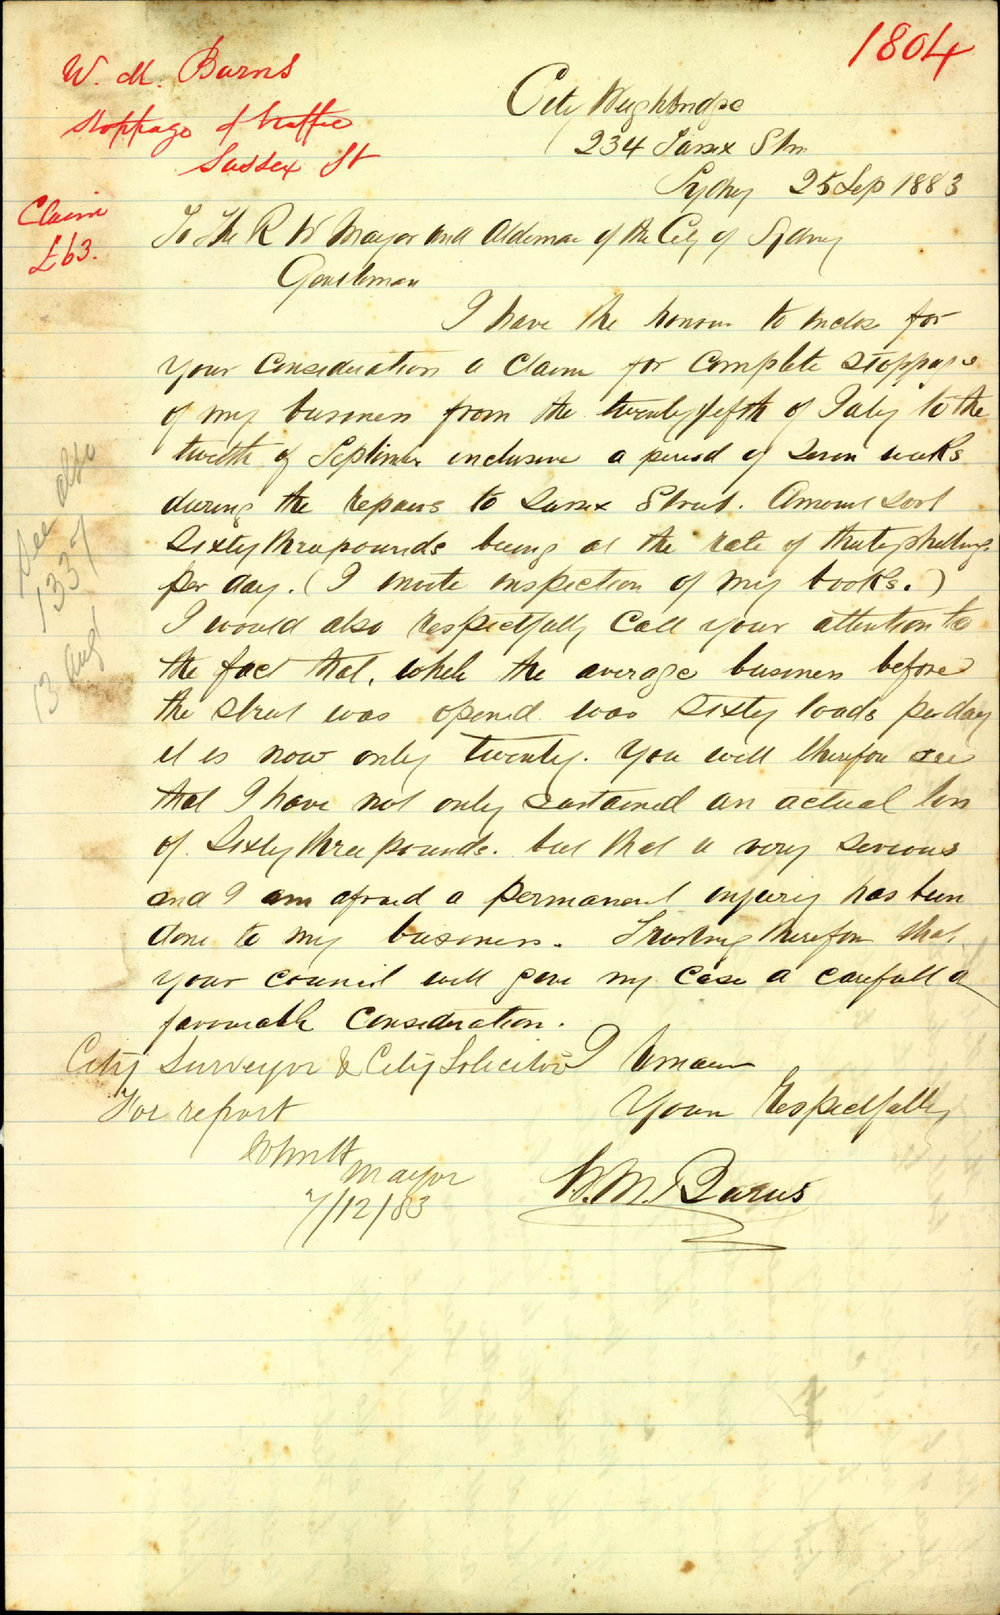 1804
W. M. Burns
Stoppage of traffic
Sussex St
Claim
£63.
City Weighbridge
234 Sussex Stre
Sydney 25 Sep 1883
To The R W Mayor and Alderman of the City of Sydney
Gentleman
I have the honour to inclose for
your consideration a Claim for complete stoppage
of my business from the twentyfifth of July to the
twelth of September inclusive a period of seven weeks
during the repairs to Sussex Street. Amount
Sixty three pounds being at the rate of thirty shillings
per day. (I invite inspection of my books.)
I would also respectfully call your attention to
the fact that, while the average business before
the street was opened was sixty loads per day
it is now only twenty. You will therefore see
that I have not only sustained an actual loss
of Sixty three pounds. but that a very serious
and I am afraid a permanent injury has been
done to my business. Trusting therefore that
your council will give my case a carefull &
favourable consideration.
I remain
Yours Respectfully
W. M. Burns
See also
1337
13 Augt
City Surveyor & City Solicitor
For report
Mayor
7/12/83